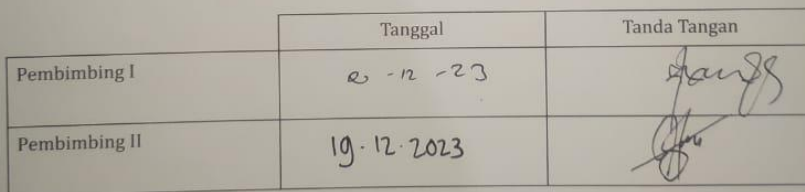 Tanggal Tanda Tangan
Pembimbing I -12 -23
Pembimbing II 19.12.2023